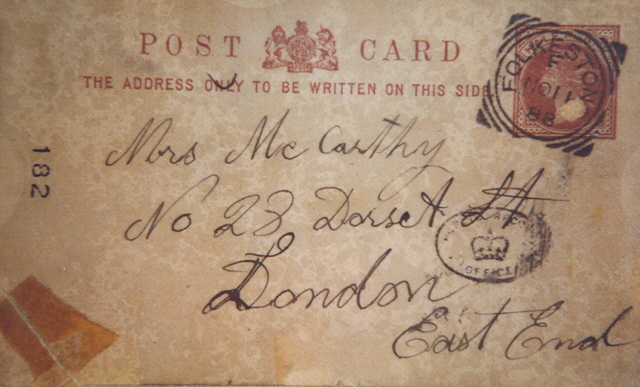 POST CARD
THE ADDRESS ONLY TO BE WRITTEN ON THIS SIDE
FOLKESTON
F
NO 11
88
182
Mrs McCarthy
No 28 Dorset St
London
East End
OFFICE